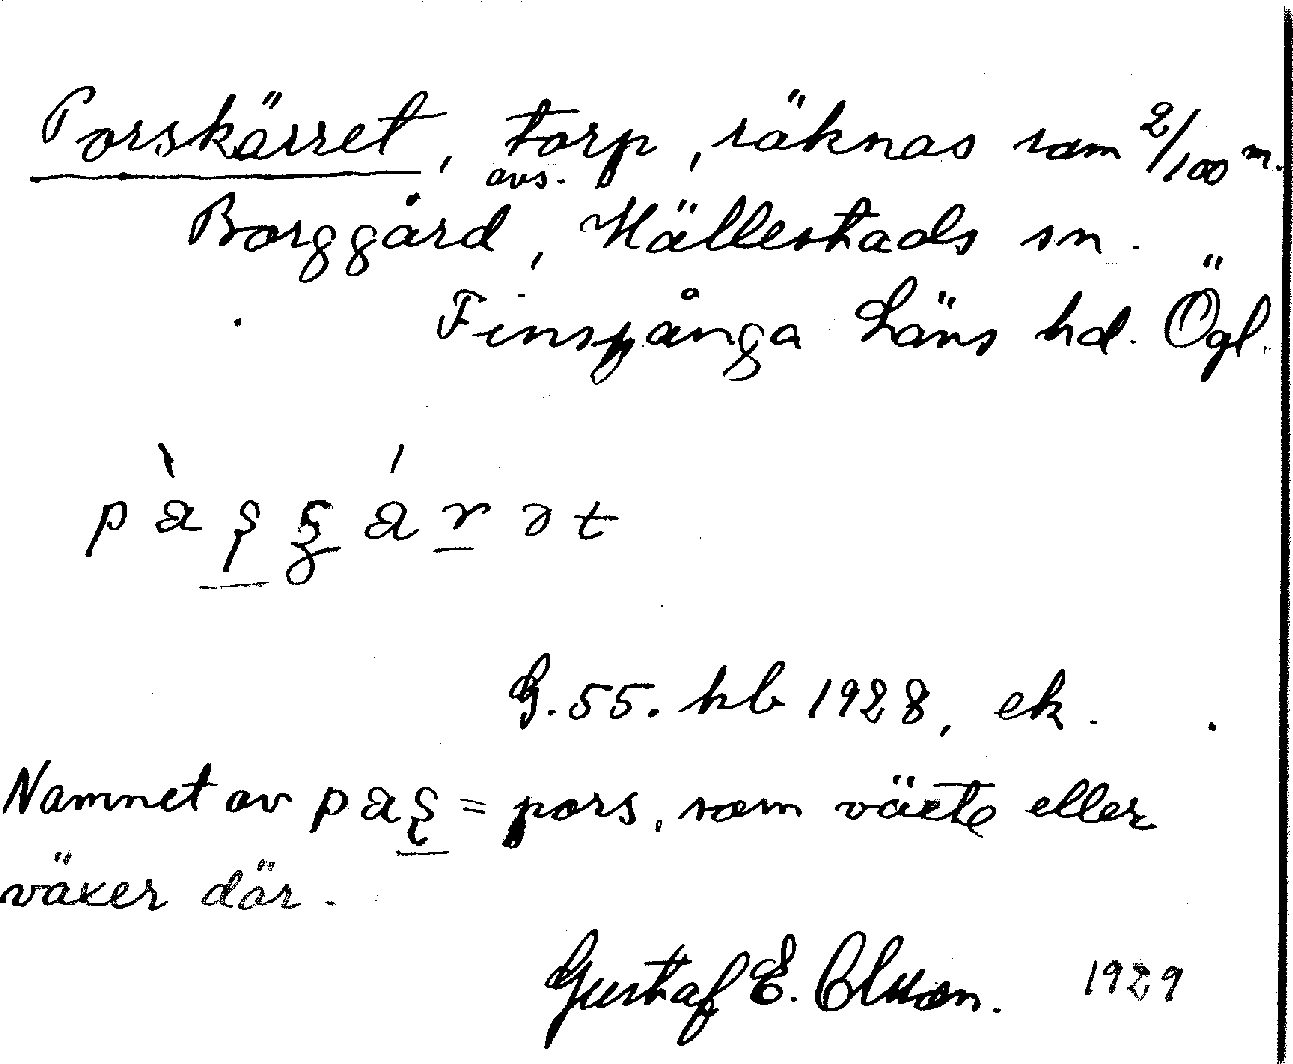 Porskärret, torp, räknas som 2/100 m.
avs.
Borggård, Hällestads sn.
Finspånga Läns hd. Ögl.
G. 55. hb 1928, ek.
Namnet av pas = pors, som växte eller
växer där.
Gustaf E. Olsson. 1929